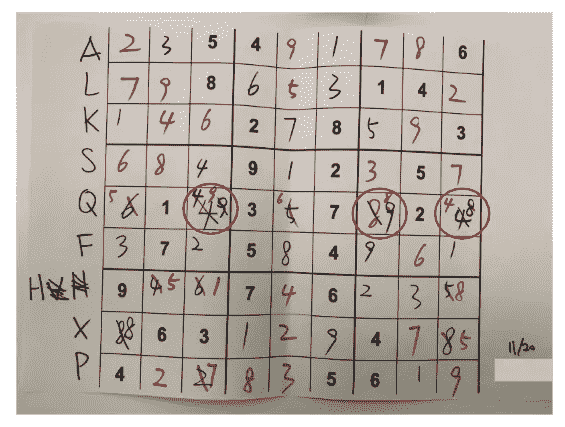 A 2 3 5 4 9 1 7 8 6
L 7 9 8 6 5 3 1 4 2
K 1 4 6 2 7 8 5 9 3
S 6 8 4 9 1 2 3 5 7
Q 5 1 3 7 2
F 3 7 2 5 8 4 9 6 1
H 9 5 1 7 4 6 2 3 8
X 8 6 3 1 2 9 4 7 5
P 4 2 7 8 3 5 6 1 9
11/20